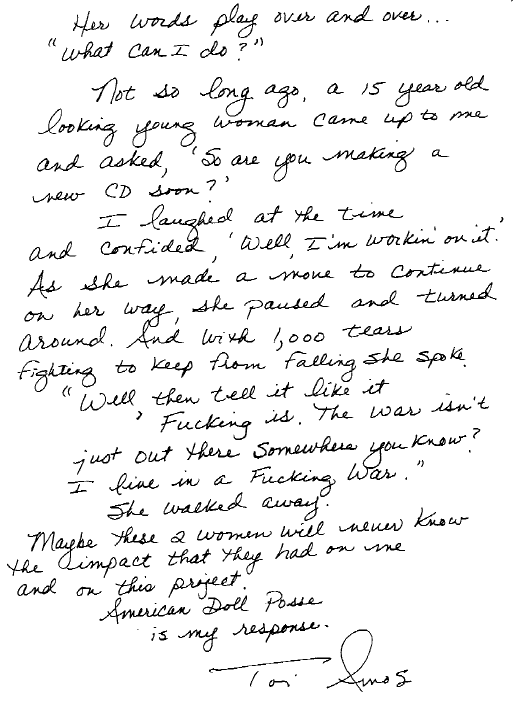 Her words play over and over...
"What can I do?"
Not so long ago, a 15 year old
looking young woman came up to me
and asked, 'So are you making a
new CD soon?'
I laughed at the time
and confided, 'Well, I'm workin' on it.'
As she made a move to continue
on her way, she paused and turned
around. And with 1,000 tears
fighting to keep from falling she spoke.
"Well then tell it like it
Fucking is. The war isn't
just out there somewhere you know?
I live in a Fucking War."
She walked away.
Maybe these 2 women will never know
the impact that they had on me
and on this project.
American Doll Posse
is my response.
Tori Amos